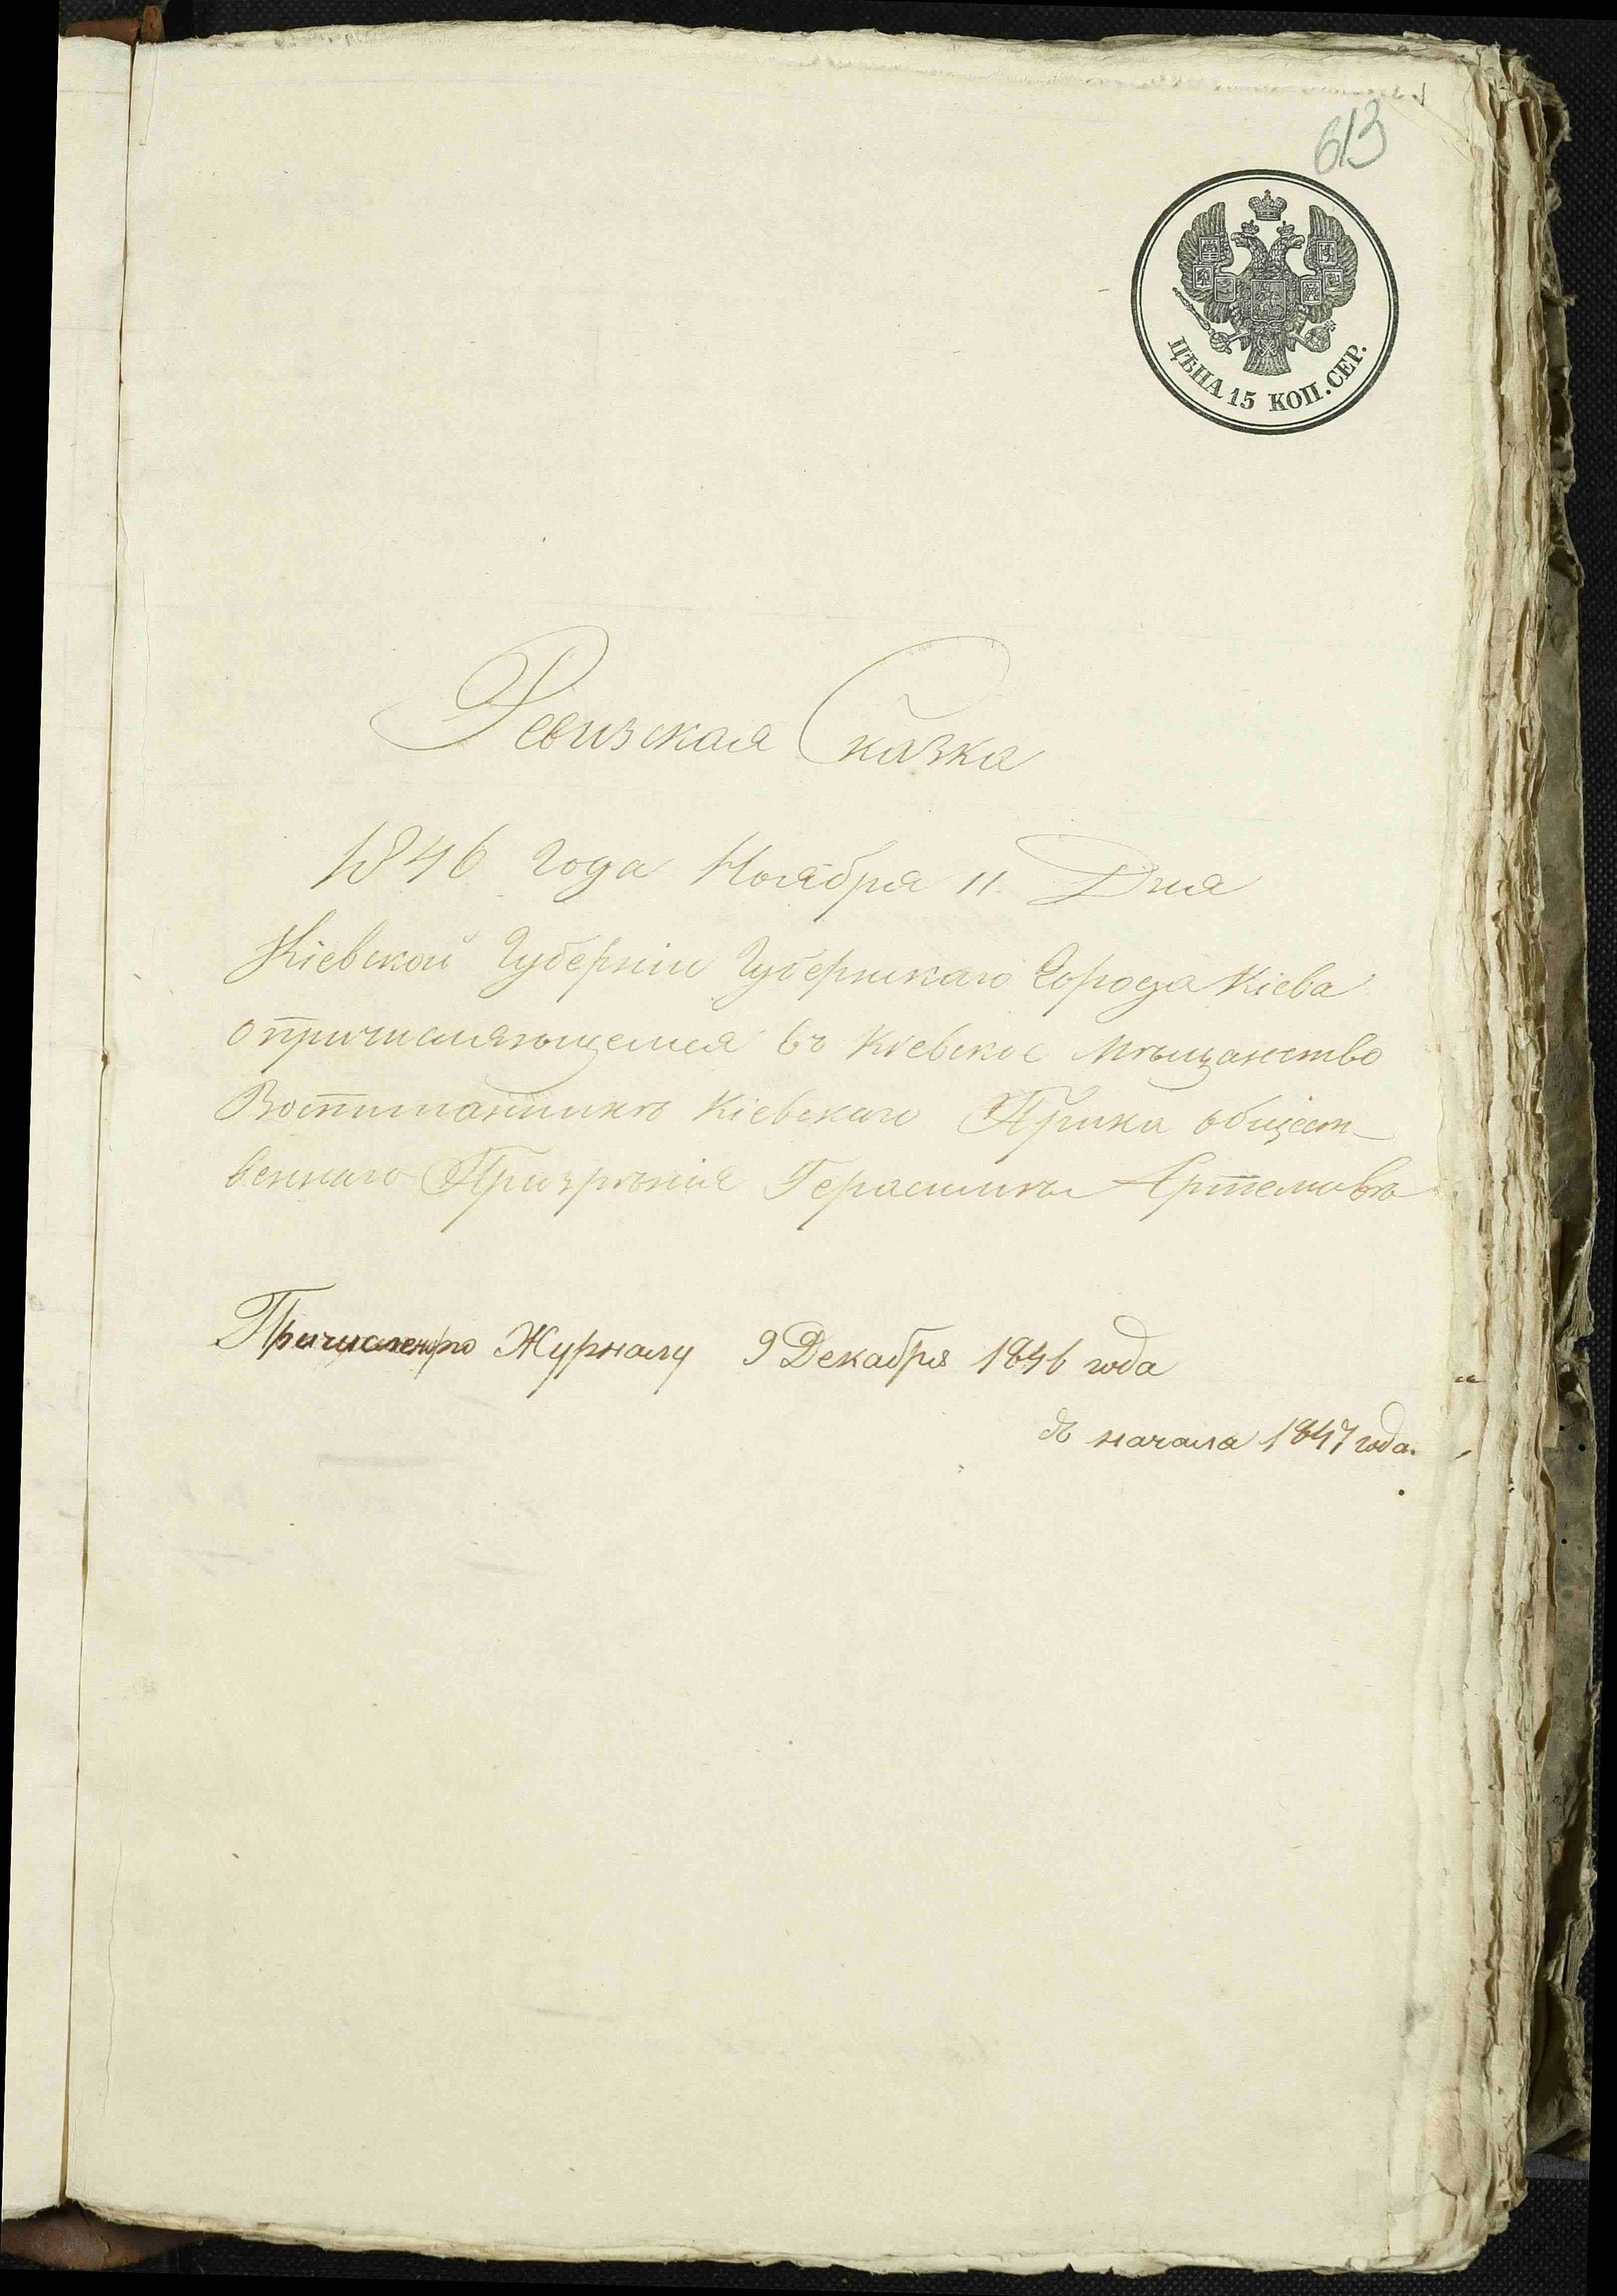 613
ЦѢНА 15 КОП. СЕР.
Ревизская Сказка
1846 Года Ноября 11. Дня
Кіевской Губерніи Губернскаго Города Кіева
о причисляющемся въ Кіевское Мѣщанство
Воспитанникѣ Кіевскаго Приказа общест-
веннаго Призрѣнія Герасимѣ Артемовѣ
Причисленъ по Журналу 9 Декабря 1846 года
съ начала 1847 года.